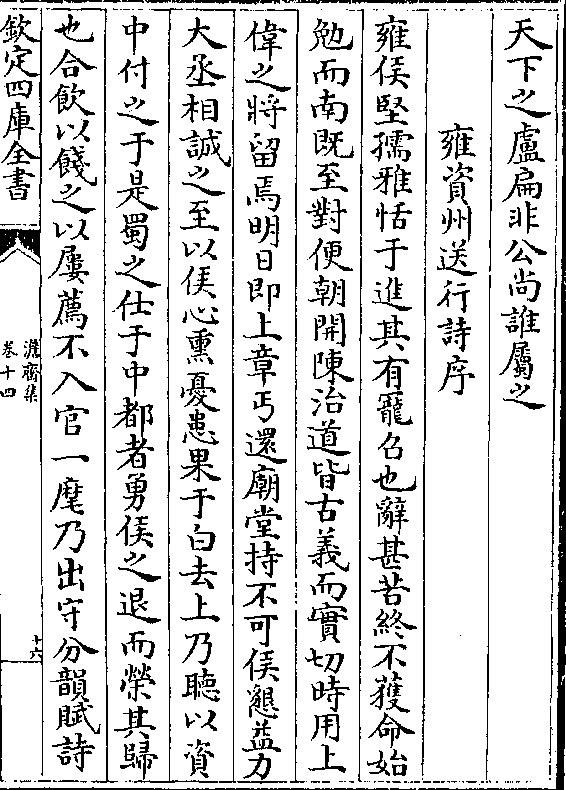 天下之盧扁非公尚誰屬之
雍資州送行詩序
雍侯堅孺雅恬于進其有寵召也辭甚苦終不獲命始
勉而南既至對便朝開陳治道皆古義而實切時用上
偉之將留焉明日即上章丐還廟堂持不可侯懇益力
大丞相誠之至以侯心熏憂患果于白去上乃聽以資
中付之于是蜀之仕于中都者勇侯之退而榮其歸
也合飲以餞之以屢薦不入官一麾乃出守分韻賦詩
欽定四庫全書
洺齋集
卷十四
十六